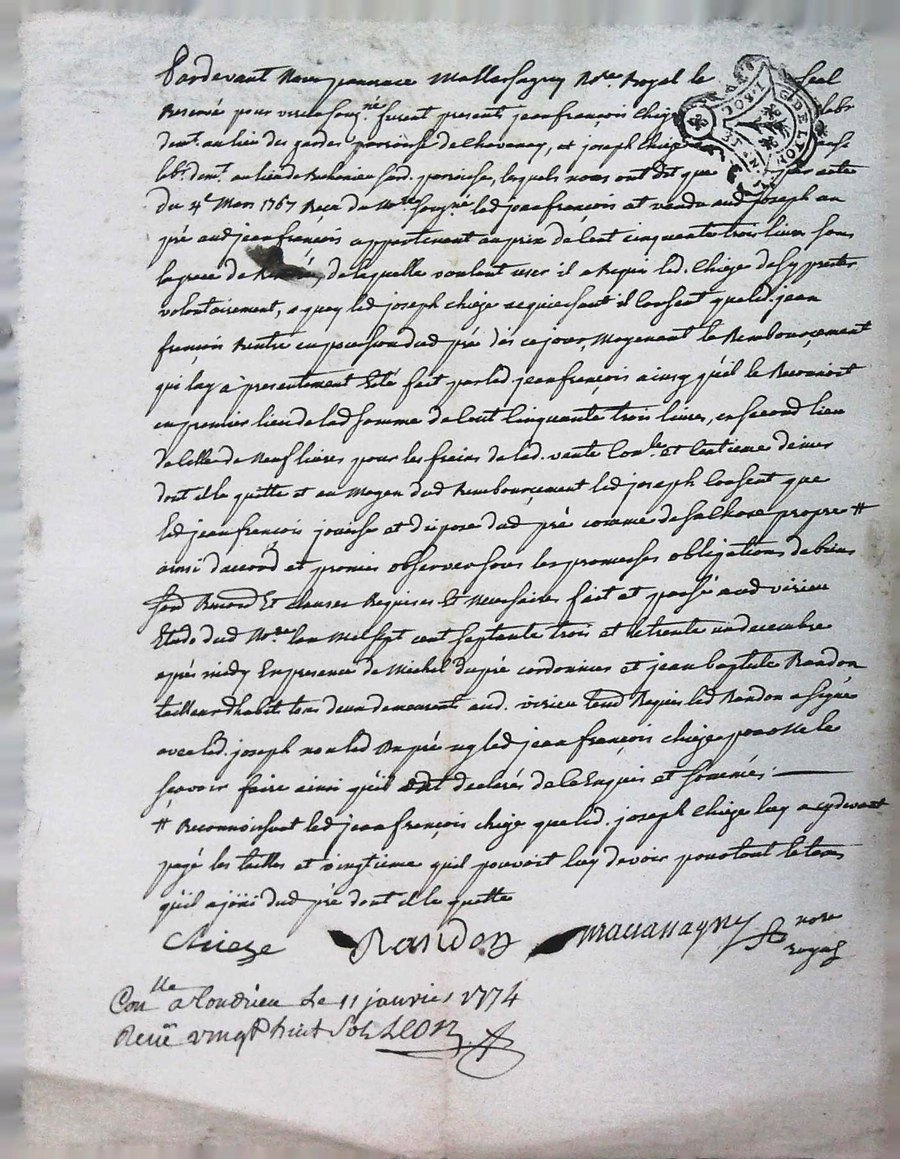 Pardevant Royal le
Reservé pour virieu soug.né furent presents jeanfrançois Chieze labr
demt. au lieu des gardes parroisse de Chavanay, et joseph Chieze
labr. demt. au lieu de lad. parroisse, lesquels nous ont dit que par acte
du 4e Mars 1767 Receu du No.re sougné led jeanfrancois at vendu aud joseph un
pré aud jeanfrançois appartenent au prix de Cent cinquante trois livres sous
la grace de de laquelle voulant user il a Requis led. Chieze de sy prester
volontairement, a quoy led joseph chieze acquiessant il Consent que led. jean
francois Rentre en possession dud pré dès ce jour, Moyenant le Rembourcement
qui luy a presentement Eté fait par led jeanfrancois ainsy qu'il le Reconnoit
en premier lieu de lad somme de Cent Cinquante trois livres, en second lieu
de Celle de Neuf livres pour les frais de lad. vente Conle. et Centieme denier
dont il le quitte et au Moyen dud Rembourcement led joseph Consent que
led jeanfrançois jouisse et dispose dud pré comme de sa Chose propre #
ainsi d'accord et promis observer sous les promesses obligations de biens
Et clauses Requises Et Necessaires fait et passé aud virieu
Etude dud No.re lan Mil sept cent septante trois et le trente un decembre
après midy En presence de Michel dupré cordonnier et jean baptiste Randon
tailleur d'habit tous deux demeurants aud. virieu Requis led Randon a signé
avec led. joseph non led Dupré ny led jeanfrançois chieze pour Ne le
scavoir faire ainsi qu'il ont declarés de ce Enquis et sommés. —
# Reconnoissant led jeanfrançois chieze que led. joseph Chieze luy a cydevant
payé les tailles et vingtieme qu'il pouvoit luy devoir pour tout le tems
qu'il a joüi dud pré dont il le quitte
Chieze Randon nore
royal
Conlle a Condrieu le 11 janvier 1774
Receu vingt huit sols